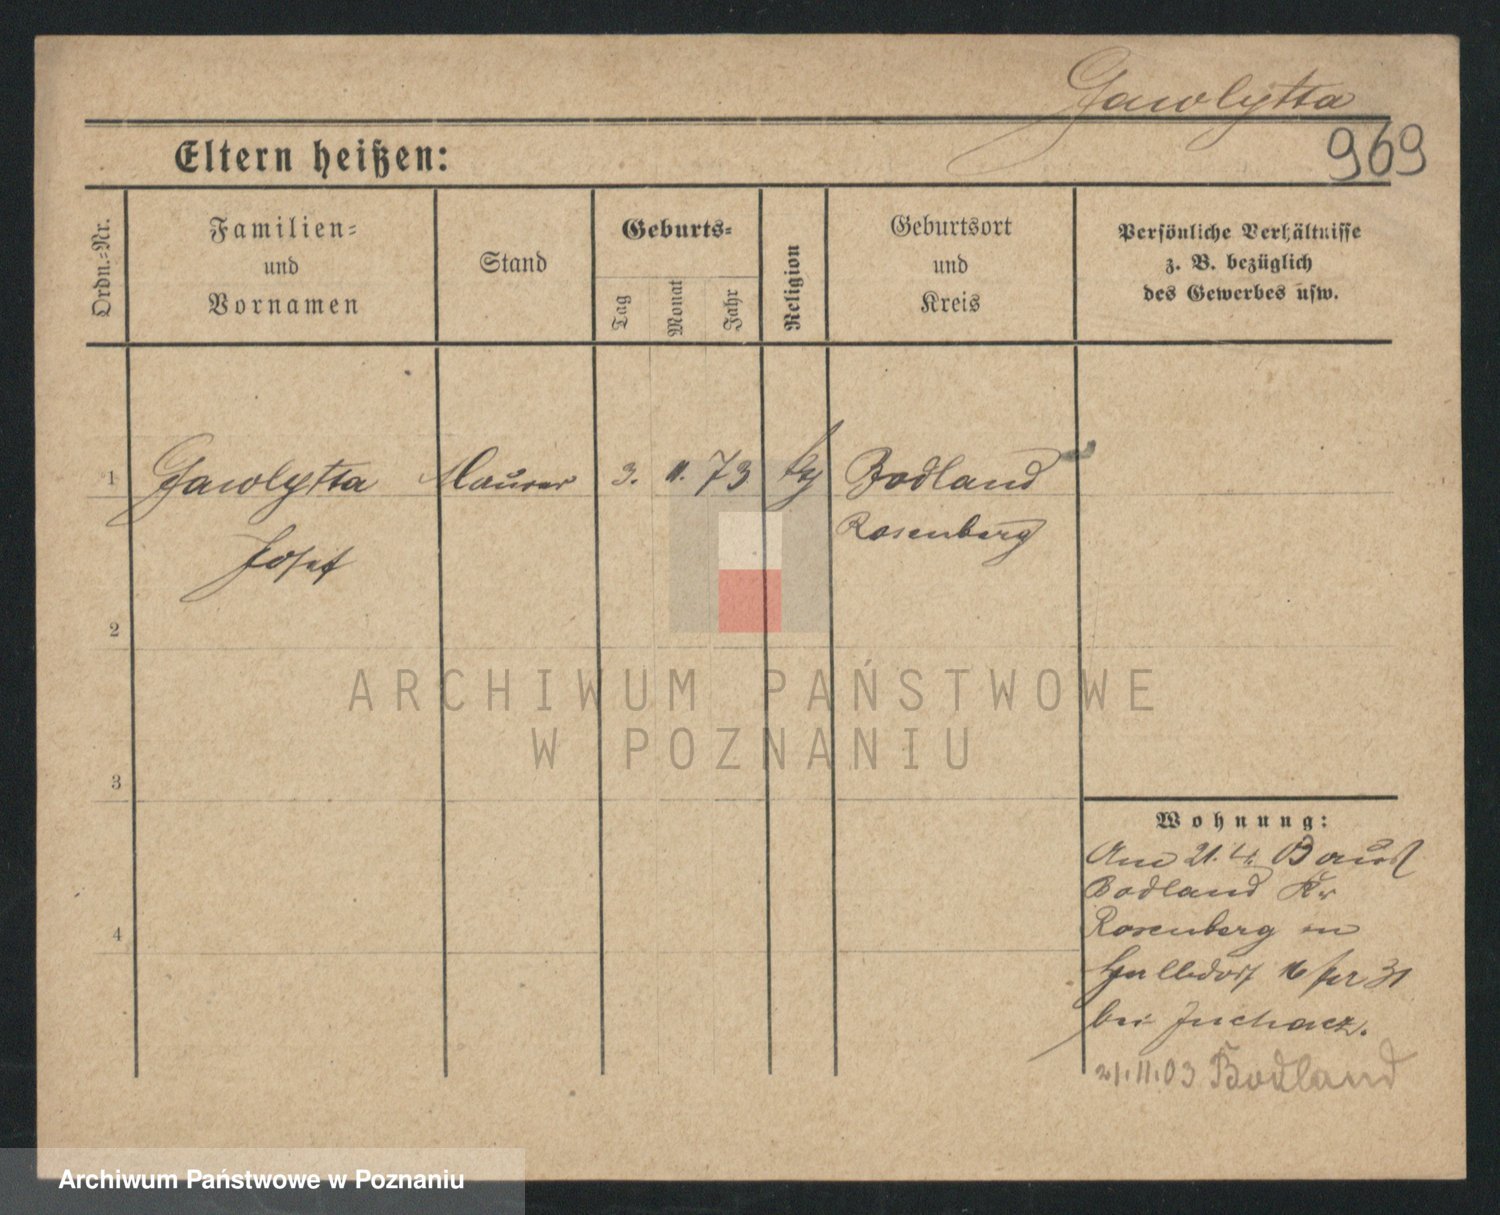 Gawlytta
969
Eltern heißen:
Ordn.-Nr.
Familien-
und
Vornamen
Stand
Geburts-
Tag
Monat
Jahr
Religion
Geburtsort
und
Kreis
Persönliche Verhältnisse
z. B. bezüglich
des Gewerbes usw.
1 Gawlytta Maurer 3. 11. 73 Bodland
Josef Rosenberg
2
3
4
Wohnung:
21. 4.
Bodland Kr
Rosenberg in
31
bei Juchacz.
21.11.03 Bodland
ARCHIWUM PAŃSTWOWE
W POZNANIU
Archiwum Państwowe w Poznaniu